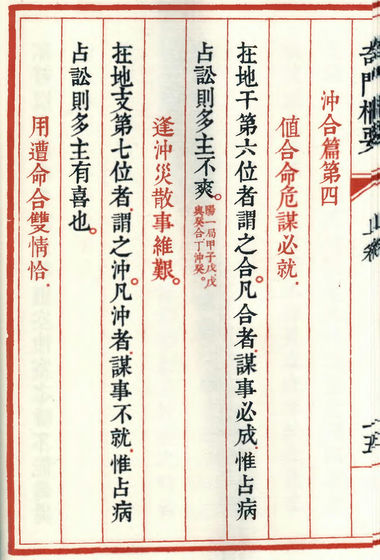 沖合篇第四
值合命危謀必就.
在地干第六位者.謂之合.凡合者.謀事必成.惟占病
占訟則多主不爽。陽一局甲子戊.戊
與癸合丁沖癸。
逢沖災散事維艱。
在地支第七位者.謂之沖.凡沖者.謀事不就.惟占病
占訟則多主有喜也。
用遭命合雙情恰.